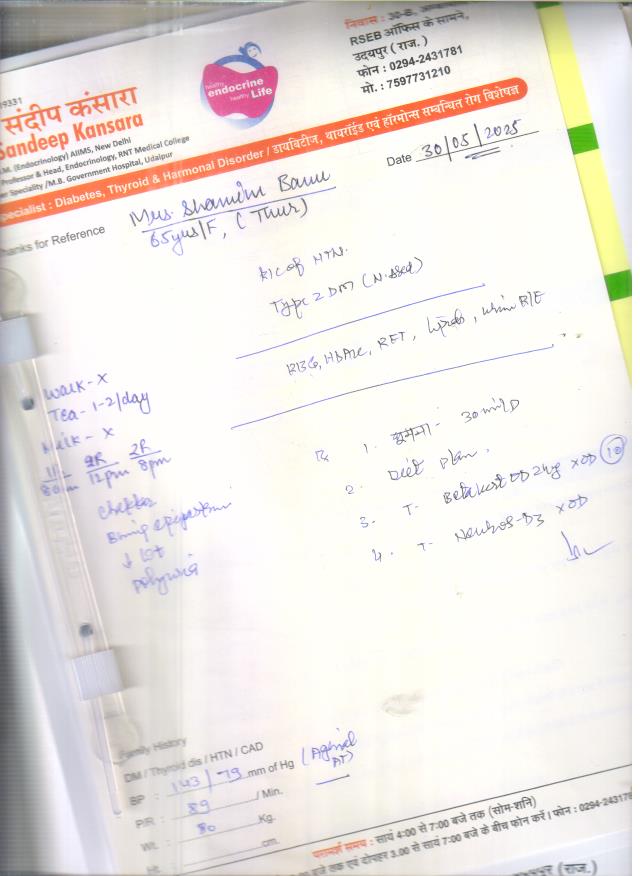 निवास : 30-B,
RSEB ऑफिस के सामने,
उदयपुर (राज.)
फोन : 0294-2431781
मो. : 7597731210
healthy
endocrine
healthy Life
संदीप कंसारा
Sandeep Kansara
M. (Endocrinology) AIIMS, New Delhi
Professor & Head, Endocrinology, RNT Medical College
er Speciality /M.B. Government Hospital, Udaipur
Specialist : Diabetes, Thyroid & Harmonal Disorder / डायबिटीज, थायरॉइड एवं हॉरमोन्स सम्बन्धित रोग विशेषज्ञ
Date 30/05/2025
Thanks for Reference
Mrs. Shamim Banu
65yrs/F, (Thur)
K/C of HTN.
Type 2 DM (N.
RBG, HbA1c, RFT, Lipids, Urine R/E
Walk - X
Tea - 1-2/day
Milk - X
2R 2R
8am 12pm 8pm
polyuria
1. घूमना - 30 min/D
2. Diet plan.
3. T- OD XOD 10
4. T- D3 XOD
Family History
DM / Thyroid dis / HTN / CAD
BP : 143/79 mm of Hg
P/R : 89 / Min.
Wt. : 80 Kg.
Ht. cm.
परामर्श समय : सायं 4:00 से 7:00 बजे तक (सोम-शनि)
बजे तक एवं दोपहर 3.00 से सायं 7:00 बजे के बीच फोन करें । फोन : 0294-24317
(राज.)